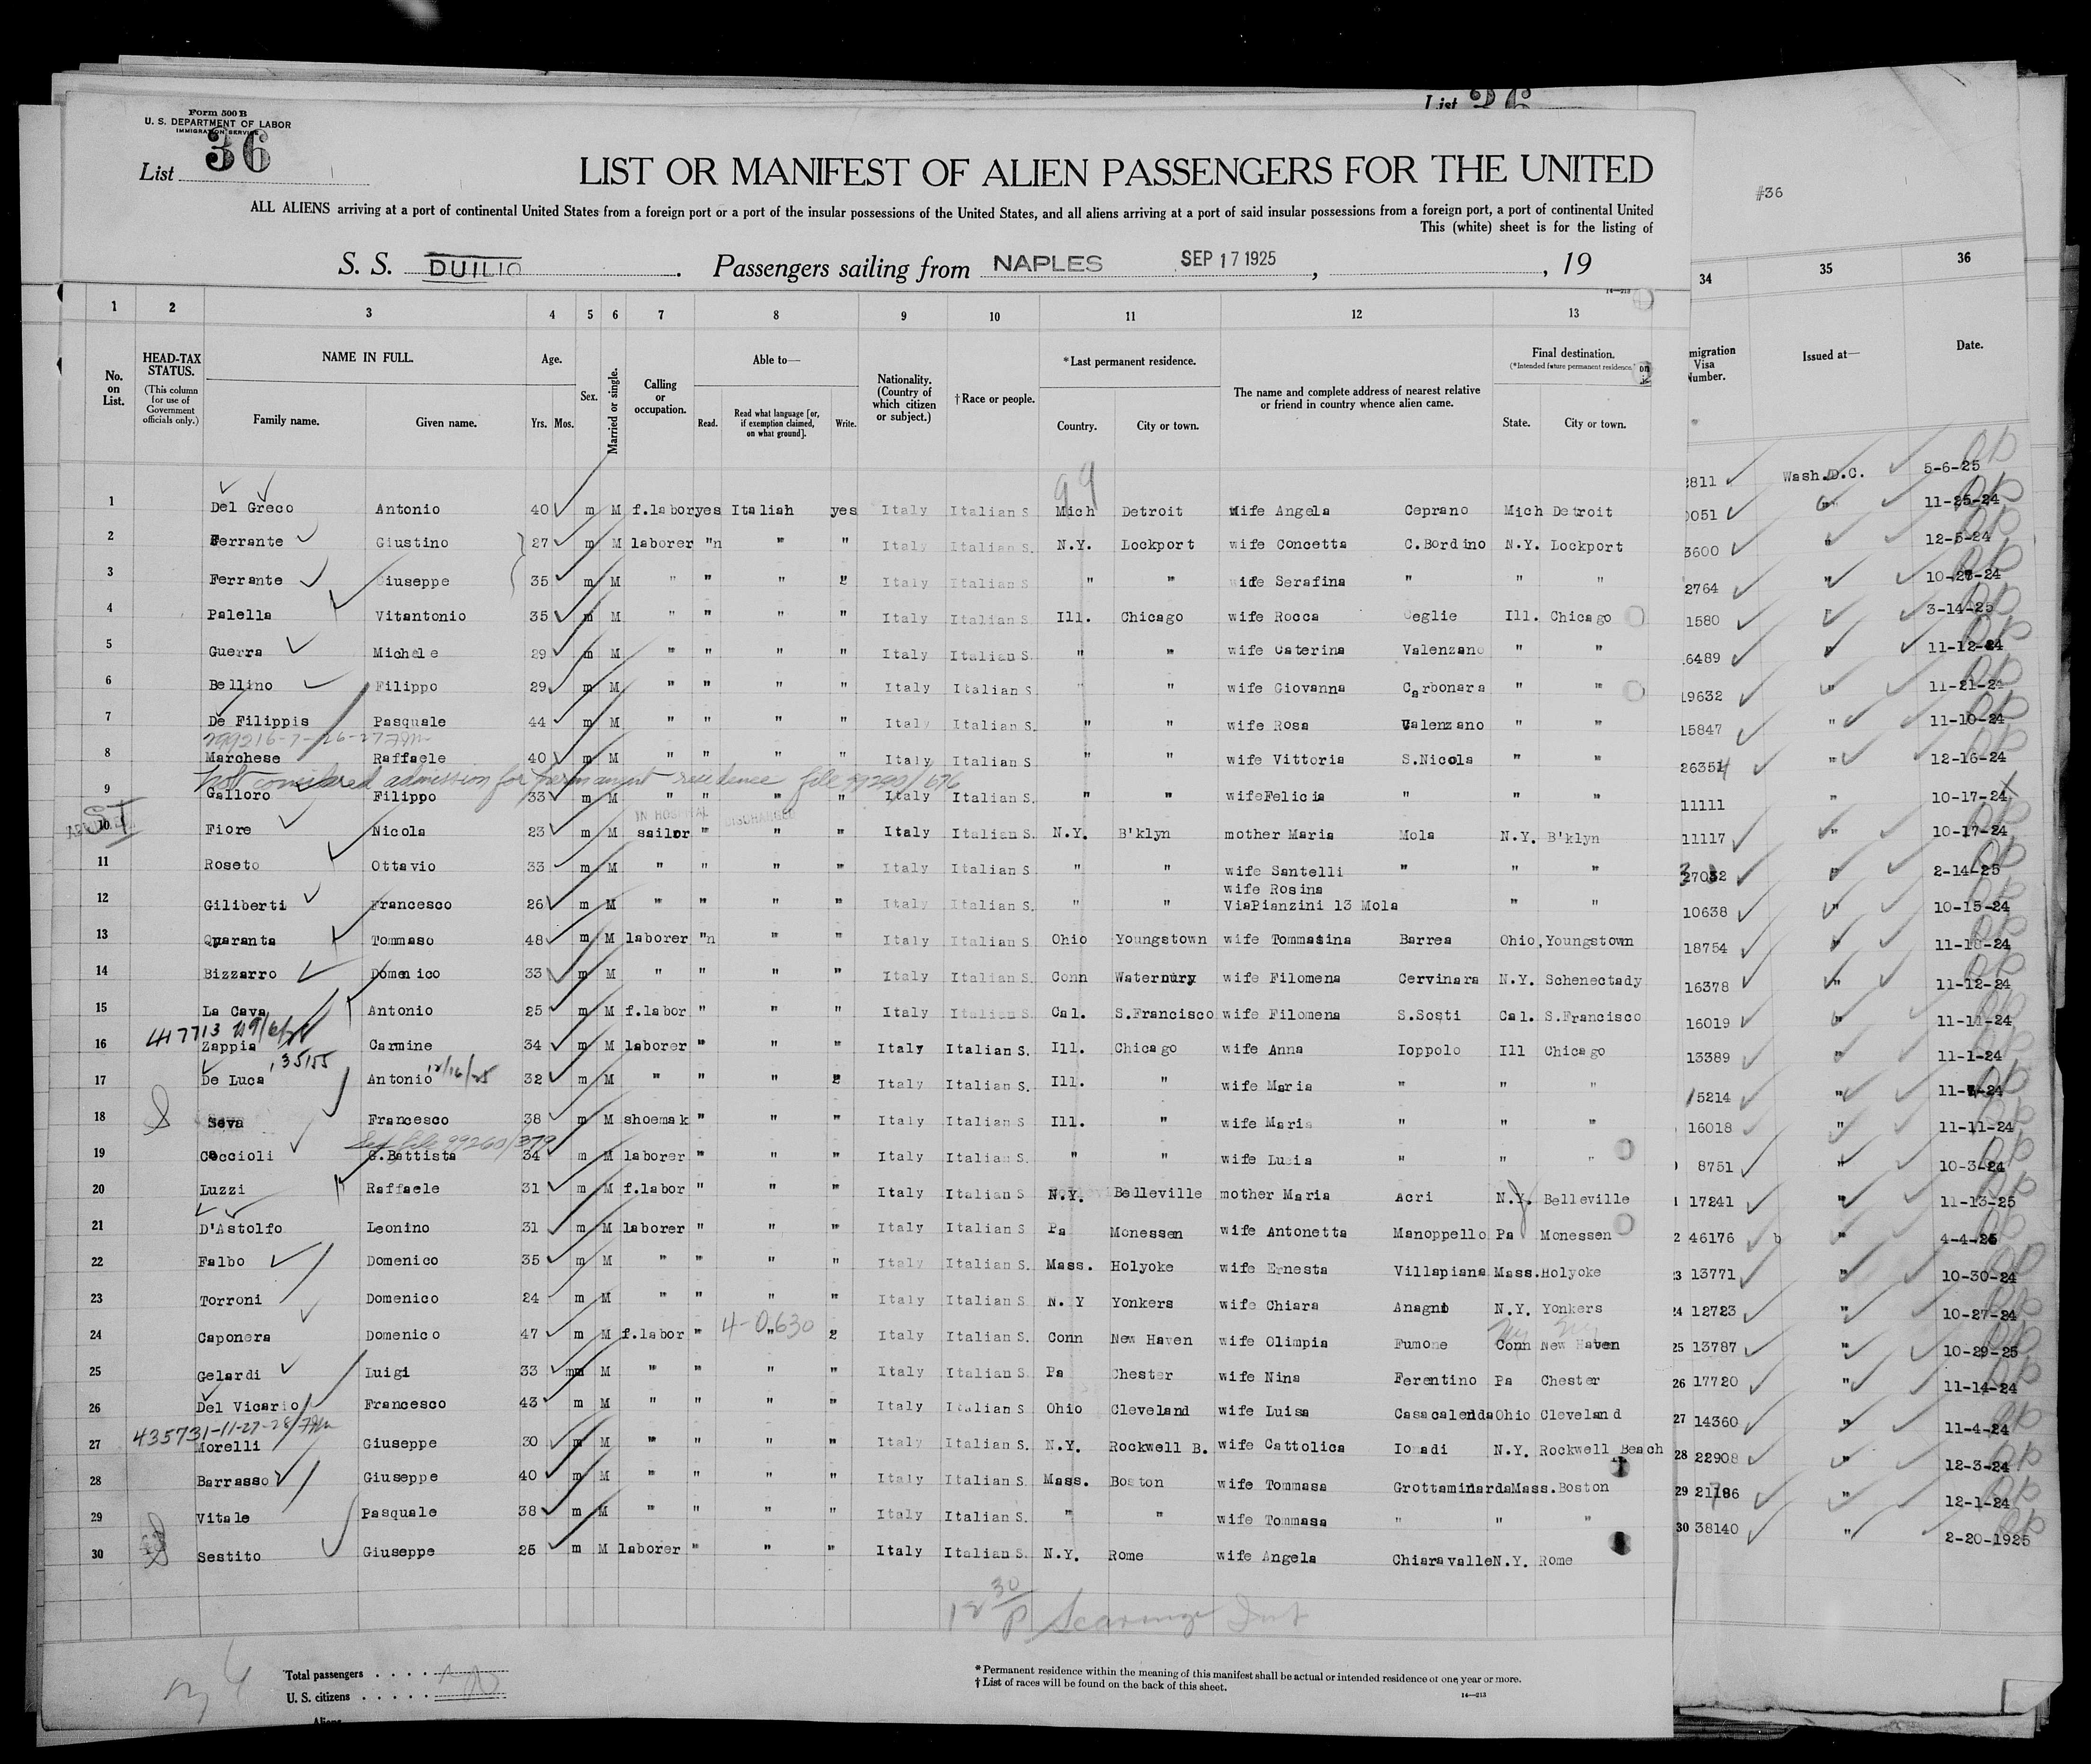 List 36
Form 500 B
U. S. DEPARTMENT OF LABOR
IMMIGRATION SERVICE
List 36
LIST OR MANIFEST OF ALIEN PASSENGERS FOR THE UNITED
#36
ALL ALIENS arriving at a port of continental United States from a foreign port or a port of the insular possessions of the United States, and all aliens arriving at a port of said insular possessions from a foreign port, a port of continental United
This (white) sheet is for the listing of
S. S. DUILIO. Passengers sailing from NAPLES SEP 17 1925, , 19
1 2 3 4 5 6 7 8 9 10 11 12 13 34 35 36
No. on List.
HEAD-TAX STATUS.
(This column for use of Government officials only.)
NAME IN FULL.
Family name. Given name.
Age.
Yrs. Mos.
Sex.
Married or single.
Calling or occupation.
Able to—
Read. Read what language [or, if exemption claimed, on what ground]. Write.
Nationality. (Country of which citizen or subject.)
†Race or people.
*Last permanent residence.
Country. City or town.
The name and complete address of nearest relative or friend in country whence alien came.
Final destination.
(*Intended future permanent residence.)
State. City or town.
migration Visa Number.
Issued at—
Date.
99
2811 Wash.D.C. 5-6-25
1 Del Greco Antonio 40 m M f.labor yes Italian yes Italy Italian S Mich Detroit wife Angela Ceprano Mich Detroit 0051 " 11-25-24
2 Ferrante Giustino 27 m M laborer "n " " Italy Italian S. N.Y. Lockport wife Concetta C.Bordino N.Y. Lockport 3600 " 12-5-24
3 Ferrante Giuseppe 35 m M " " " " Italy Italian S " " wife Serafina " " " 2764 " 10-27-24
4 Palella Vitantonio 35 m M " " " " Italy Italian S. Ill. Chicago wife Rocca Ceglie Ill. Chicago 1580 " 3-14-25
5 Guerra Michele 29 m M " " " " Italy Italian S. " " wife Caterina Valenzano " " 6489 " 11-12-24
6 Bellino Filippo 29 m M " " " " Italy Italian S. " " wife Giovanna Carbonara " " 19632 " 11-21-24
7 De Filippis Pasquale 44 m M " " " " Italy Italian S. " " wife Rosa Valenzano " " 15847 " 11-10-24
8 Marchese Raffaele 40 m M " " " " Italy Italian S. " " wife Vittoria S.Nicola " " 26354 " 12-16-24
Not considered admission for permanent residence file 99290/676
9 Galloro Filippo 33 m M " " " " Italy Italian S. " " wifeFelicia " " " 11111 " 10-17-24
IN HOSPITAL DISCHARGED
10 Fiore Nicola 23 m M sailor " " " Italy Italian S. N.Y. B'klyn mother Maria Mola N.Y. B'klyn 11117 " 10-17-24
11 Roseto Ottavio 33 m M " " " " Italy Italian S. " " wife Santelli " " " 27032 " 2-14-25
12 Giliberti Francesco 26 m M " " " " Italy Italian S. " " wife Rosina ViaPianzini 13 Mola " " 10638 " 10-15-24
13 Quaranta Tommaso 48 m M laborer "n " " Italy Italian S. Ohio Youngstown wife Tommasina Barrea Ohio, Youngstown 18754 " 11-18-24
14 Bizzarro Domenico 33 m M " " " " Italy Italian S. Conn Waterbury wife Filomena Cervinara N.Y. Schenectady 16378 " 11-12-24
15 La Cava Antonio 25 m M f.labor " " " Italy Italian S. Cal. S.Francisco wife Filomena S.Sosti Cal. S.Francisco 16019 " 11-11-24
16 Zappia Carmine 34 m M laborer " " " Italy Italian S. Ill. Chicago wife Anna Ioppolo Ill Chicago 13389 " 11-1-24
135155 12/16/25
17 De Luca Antonio 32 m M " " " " Italy Italian S. Ill. " wife Maria " " " 15214 "
18 Seva Francesco 38 m M shoemak " " " Italy Italian S. Ill. " wife Maria " " " 16018 " 11-11-24
See file 99260/379
19 Coccioli G.Battista 34 m M laborer " " " Italy Italian S. " " wife Lucia " " " 8751 " 10-3-24
20 Luzzi Raffaele 31 m M f.labor " " " Italy Italian S N.Y. Belleville mother Maria Acri N.Y. Belleville 17241 " 11-13-25
21 D'Astolfo Leonino 31 m M laborer " " " Italy Italian S Pa Monessen wife Antonetta Manoppello Pa Monessen 46176 " 4-4-25
22 Falbo Domenico 35 m M " " " " Italy Italian S. Mass. Holyoke wife Ernesta Villapiana Mass. Holyoke 13771 " 10-30-24
23 Torroni Domenico 24 m M " " " " Italy Italian S N. Y Yonkers wife Chiara Anagni N.Y. Yonkers 12723 " 10-27-24
4-0630
24 Caponera Domenico 47 m M f.labor " " " Italy Italian S. Conn New Haven wife Olimpia Fumone Conn New Haven 13787 " 10-29-25
25 Gelardi Luigi 33 m M " " " " Italy Italian S. Pa Chester wife Nina Ferentino Pa Chester 17720 " 11-14-24
26 Del Vicario Francesco 43 m M " " " " Italy Italian S Ohio Cleveland wife Luisa Casacalenda Ohio Cleveland 14360 " 11-4-24
435731-11-27-28
27 Morelli Giuseppe 30 m M " " " " Italy Italian S. N.Y. Rockwell B. wife Cattolica Ionadi N.Y. Rockwell Beach 22908 " 12-3-24
28 Barrasso Giuseppe 40 m M " " " " Italy Italian S. Mass. Boston wife Tommasa Grottaminarda Mass. Boston 21186 " 12-1-24
29 Vitale Pasquale 38 m M " " " " Italy Italian S. " " wife Tommasa " " " 38140 " 2-20-1925
30 Sestito Giuseppe 25 m M laborer " " " Italy Italian S. N.Y. Rome wife Angela Chiaravalle N.Y. Rome
Total passengers . . . .
U. S. citizens . . . . .
Aliens
* Permanent residence within the meaning of this manifest shall be actual or intended residence of one year or more.
† List of races will be found on the back of this sheet.
14—213